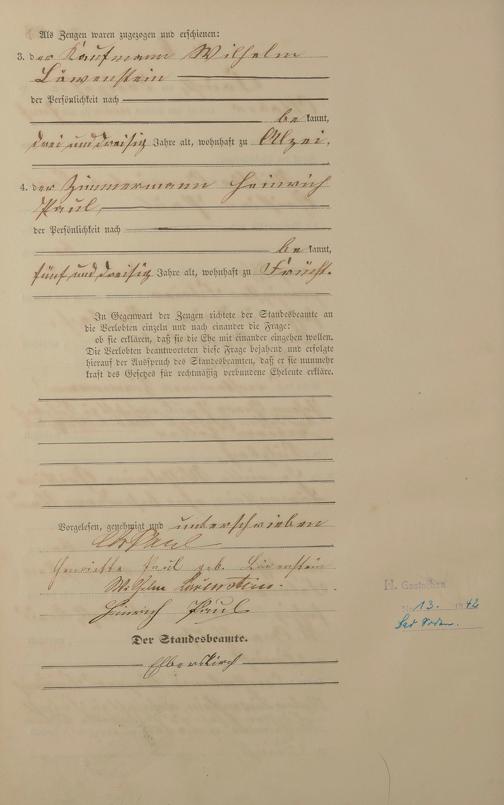 Als Zeugen waren zugezogen und erschienen:
3. der Kaufmann Wilhelm
Löwenstein
der Persönlichkeit nach
be kannt,
drei und dreißig Jahre alt, wohnhaft zu Alzei.
4. der Zimmermann Heinrich
Paul
der Persönlichkeit nach
be kannt,
fünf und dreißig Jahre alt, wohnhaft zu Frücht.
In Gegenwart der Zeugen richtete der Standesbeamte an
die Verlobten einzeln und nach einander die Frage:
ob sie erklären, daß sie die Ehe mit einander eingehen wollen.
Die Verlobten beantworteten diese Frage bejahend und erfolgte
hierauf der Ausspruch des Standesbeamten, daß er sie nunmehr
kraft des Gesetzes für rechtmäßig verbundene Eheleute erkläre.
Vorgelesen, genehmigt und unterschrieben
Paul
Henriette Paul geb. Löwenstein
Wilhelm Löwenstein.
Heinrich Paul
Der Standesbeamte.
H.
13. 42